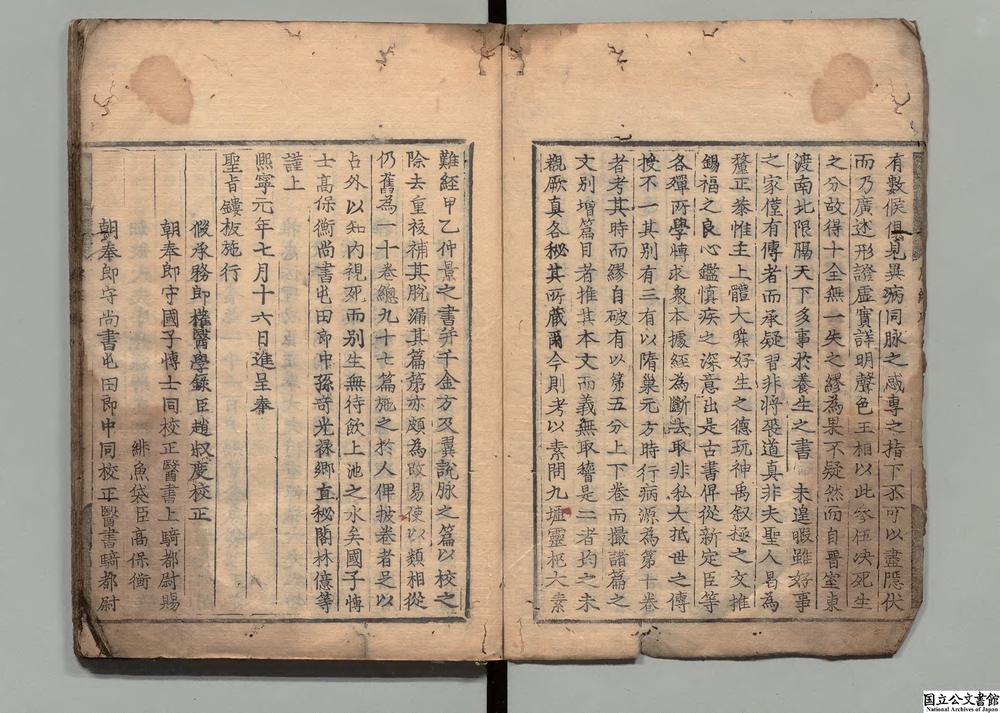 有數候俱見異病同脉之惑專之指下不可以盡隱伏
而乃廣述形證虛實詳明聲色王相以此參伍决死生
之分故得十全無一失之繆為果不疑然而自晉室東
渡南北限隔天下多事於養生之書 未遑暇雖好事
之家僅有傳者而承疑習非將䘮道真非夫聖人曷為
釐正恭惟主上體大舜好生之德玩神禹叙極之文推
錫福之良心鑑慎疾之深意出是古書俾從新定臣等
各殫所學愽求衆本據經為斷去取非私大抵世之傳
授不一其别有三有以隋巢元方時行病源為第十卷
者考其時而繆自破有以第五分上下卷而撮諸篇之
文别增篇目者推其本文而義無取稽是二者均之未
觀厥真各秘其所藏爾今則考以素問九墟靈樞太素
難經甲乙仲景之書并千金方及翼說脉之篇以校之
除去重複補其脫漏其篇第亦頗為改易使以類相從
仍舊為一十卷總九十七篇施之於人俾披卷者足以
占外以知内視死而别生無待飲上池之水矣國子愽
士高保衡尚書屯田郎中孫奇光祿卿直秘閣林億等
謹上
熈寧元年七月十六日進呈奉
聖旨鏤板施行
假承務郎權醫學錄臣趙叔度校正
朝奉郎守國子愽士同校正醫書上騎都尉賜
緋魚袋臣高保衡
朝奉郎守尚書屯田郎中同校正醫書騎都尉
国立公文書館
National Archives of Japan